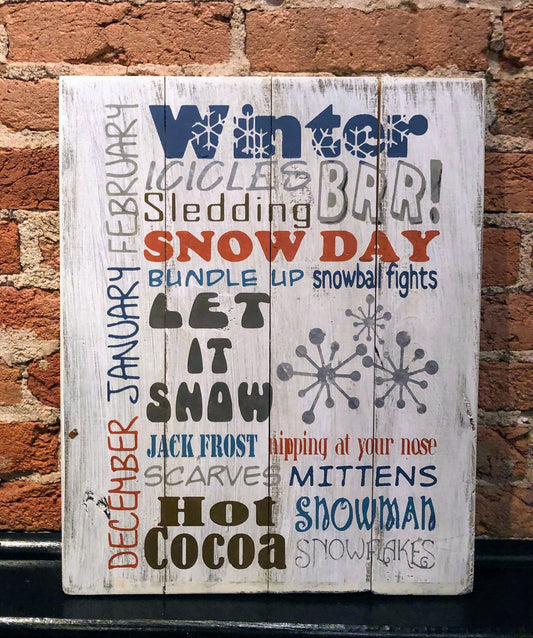 Winter
ICICLES BRR!
Sledding
SNOW DAY
BUNDLE UP snowball fights
LET
IT
SNOW
JACK FROST nipping at your nose
SCARVES MITTENS
Hot SNOWMAN
Cocoa SNOWFLAKES
DECEMBER JANUARY FEBRUARY